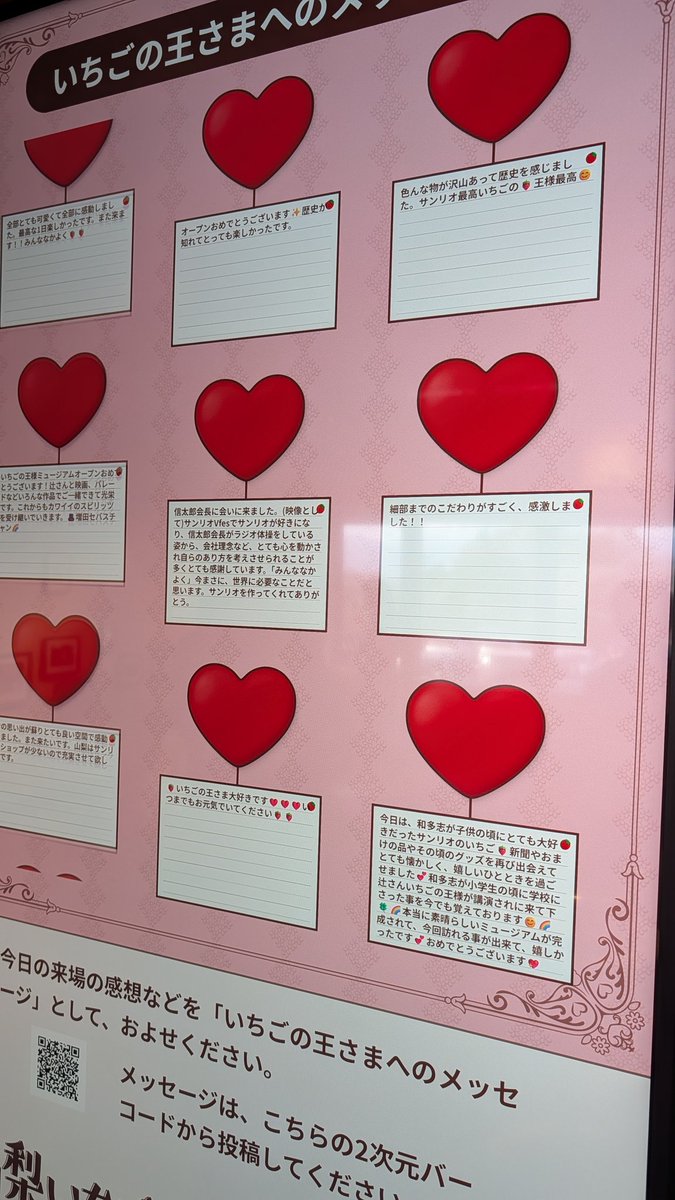 いちごの王さまへのメッ
全部とても可愛くて全部に感動しまし
た。最高な1日楽しかったです。また来ま
す！！みんななかよく🍓🍓
オープンおめでとうございます✨歴史が
知れてとっても楽しかったです。
色んな物が沢山あって歴史を感じまし
た。サンリオ最高いちごの🍓王様最高😊
いちごの王様ミュージアムオープンおめ
とうございます！辻さんと映画、パレー
ドなどいろんな作品でご一緒できて光栄
です。これからもカワイイのスピリッツ
を受け継いでいきます。増田セバスチ
ャン🌈
信太郎会長に会いに来ました。(映像とし
て)サンリオVfesでサンリオが好きにな
り、信太郎会長がラジオ体操をしている
姿から、会社理念など、とても心を動かさ
れ自らのあり方を考えさせられることが
多くとても感謝しています。「みんななか
よく」今まさに、世界に必要なことだと
思います。サンリオを作ってくれてありが
とう。
細部までのこだわりがすごく、感激しま
した！！
の思い出が蘇りとても良い空間で感動
ました。また来たいです。山梨はサンリ
ショップが少ないので充実させて欲し
です。
🍓いちごの王さま大好きです💖💖💖い
つまでもお元気でいてください🍓🍓
今日は、和多志が子供の頃にとても大好
きだったサンリオのいちご🍓新聞やおま
けの品やその頃のグッズを再び出会えて
とても懐かしく、嬉しいひとときを過ご
せました💕和多志が小学生の頃に学校に
辻さんいちごの王様が講演されに来て下
さった事を今でも覚えております😊🌈
🍀🌈本当に素晴らしいミュージアムが完
成されて、今回訪れる事が出来て、嬉しか
ったです💕おめでとうございます💖
今日の来場の感想などを「いちごの王さまへのメッセ
ージ」として、およせください。
メッセージは、こちらの2次元バー
コードから投稿してください